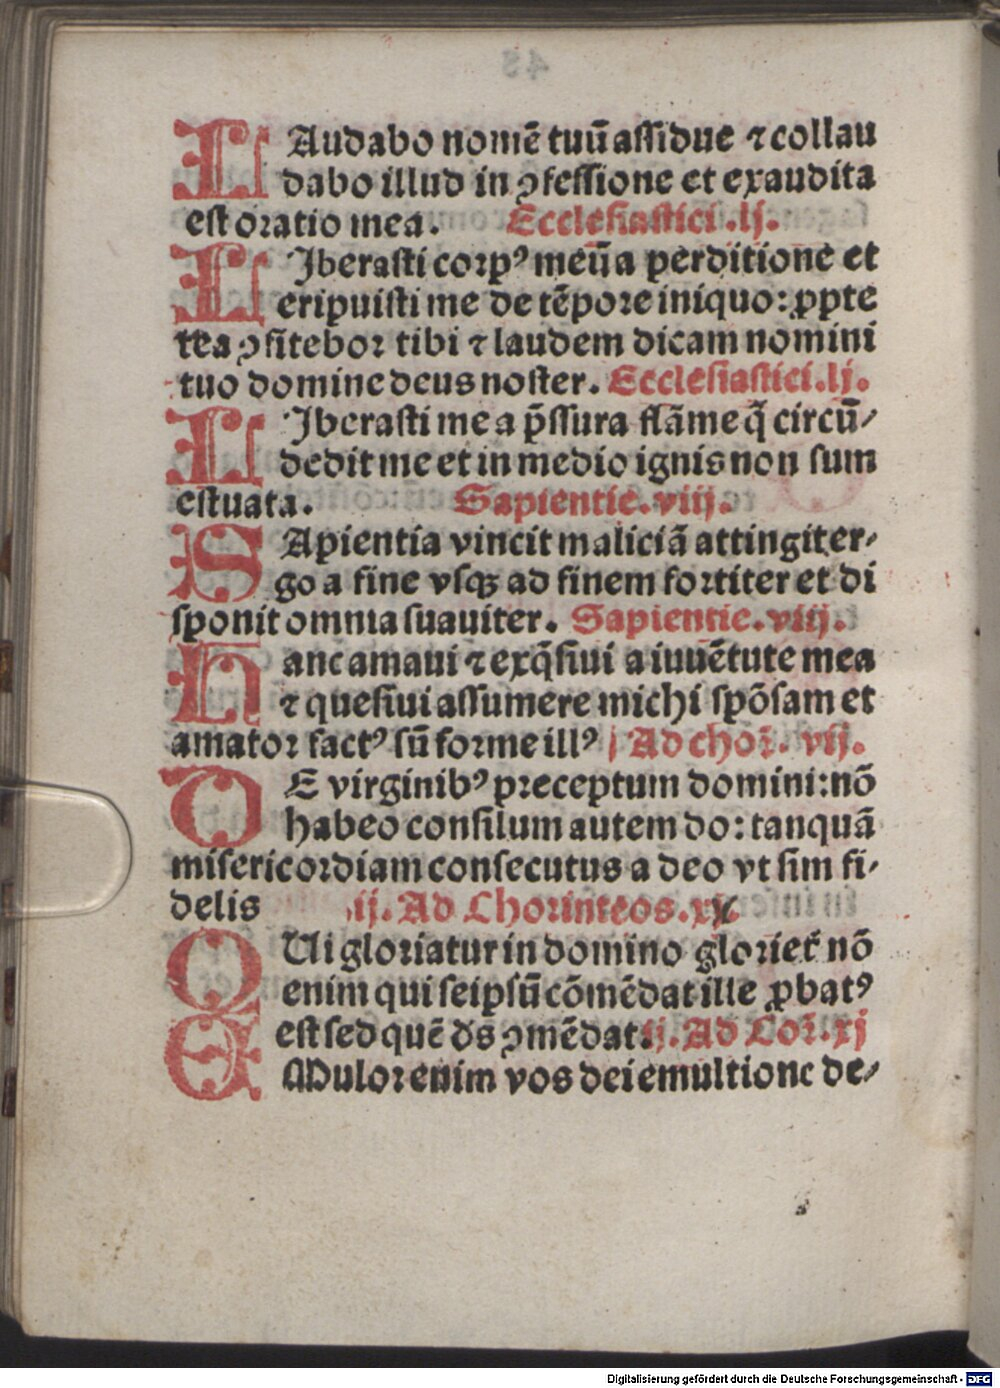 LAudabo nomē tuū assidue ⁊ collau
dabo illud in ꝯfessione et exaudita
est oratio mea. Ecclesiastici .lj.
LIberasti corpꝰ meū a perditione et
eripuisti me de tēpore iniquo: ꝓpte
rea ꝯfitebor tibi ⁊ laudem dicam nomini
tuo domine deus noster. Ecclesiastici.lj.
LIberasti me a p̄ssura flāme q̄ circū⸗
dedit me et in medio ignis non sum
estuata. Sapientie. viij.
SApientia vincit maliciā attingit er⸗
go a fine vsqꝫ ad finem fortiter et di
sponit omnia suauiter. Sapientie. viij.
Hanc amaui ⁊ exq̄siui a iuuētute mea
⁊ quesiui assumere michi spōsam et
amator factꝰ sū forme illꝰ Ad chor̄. vij.
DE virginibꝰ preceptum domini: nō
habeo consilum autem do: tanquā
misericordiam consecutus a deo vt sim fi⸗
delis ij. Ad Chorinteos. x
QUi gloriatur in domino gloriet̄ nō
enim qui seipsū cōmēdat ille ꝓbatꝰ
est sed quē ds̄ ꝯmēdat. ij. Ad Cor̄. xj
EMulor enim vos dei emultione de⸗
48
Digitalisierung gefördert durch die Deutsche Forschungsgemeinschaft - DFG